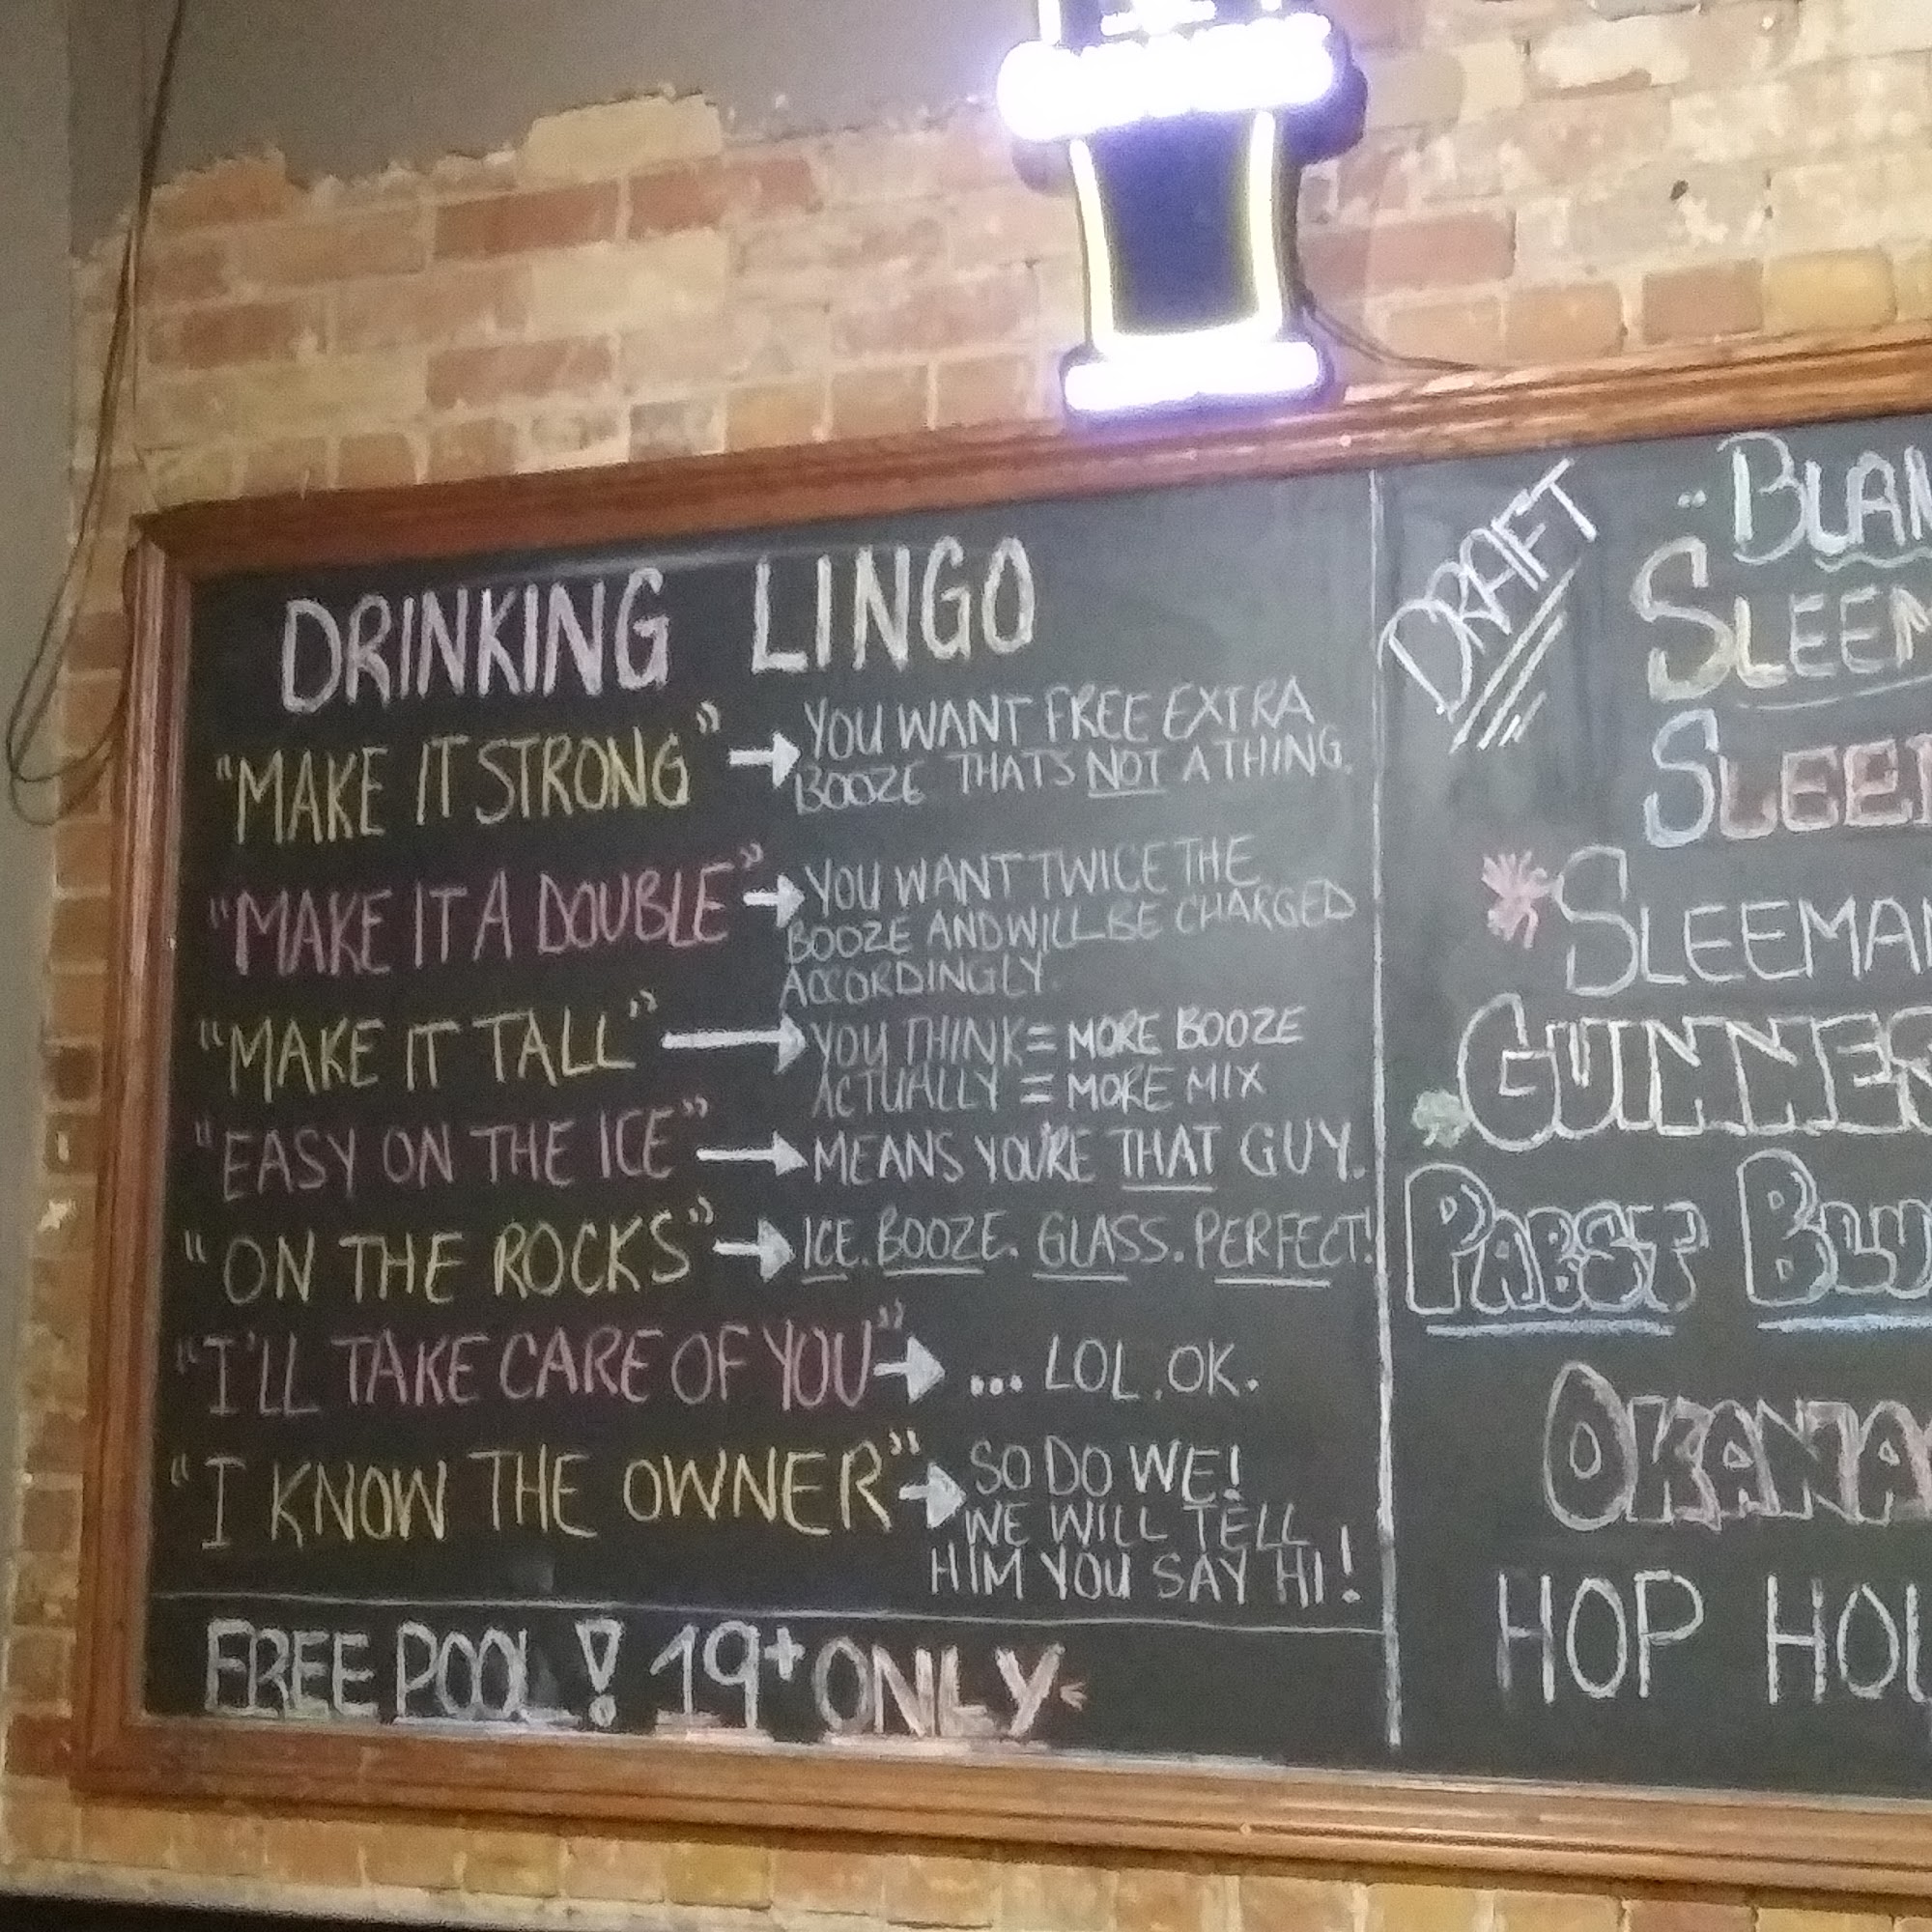 DRINKING LINGO
"MAKE IT STRONG" → YOU WANT FREE EXTRA
BOOZE THATS NOT A THING.
"MAKE IT A DOUBLE" → YOU WANT TWICE THE
BOOZE AND WILL BE CHARGED
ACCORDINGLY.
"MAKE IT TALL" → YOU THINK = MORE BOOZE
ACTUALLY = MORE MIX
"EASY ON THE ICE" → MEANS YOU'RE THAT GUY.
"ON THE ROCKS" → ICE. BOOZE. GLASS. PERFECT!
"I'LL TAKE CARE OF YOU" → ... LOL. OK.
"I KNOW THE OWNER" → SO DO WE!
WE WILL TELL
HIM YOU SAY HI!
FREE POOL! 19+ ONLY
DRAFT
SLEEMA
GUINNES
PABST BLU
OKANA
HOP HOU